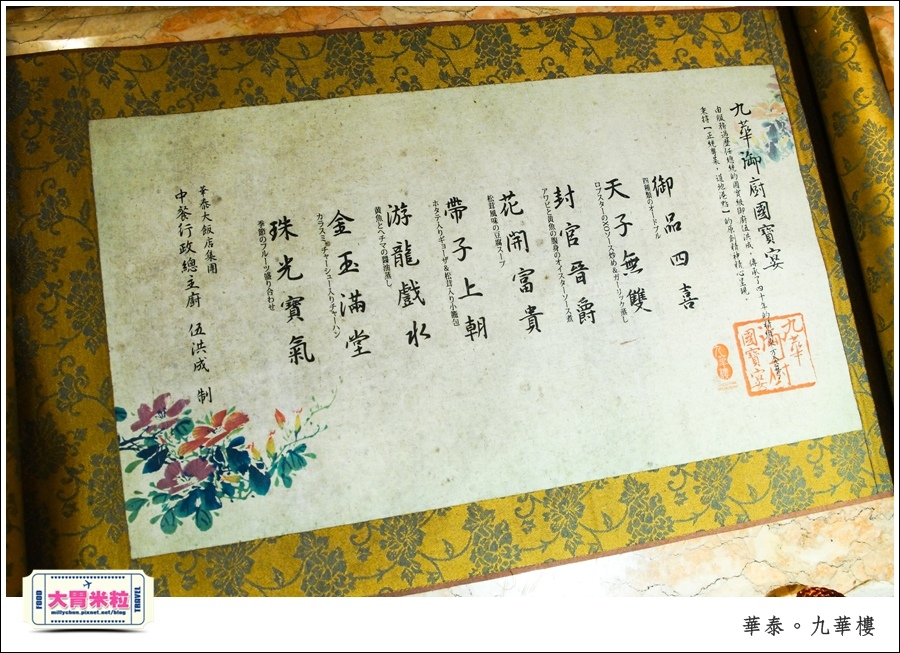 九華御廚國寶宴
由服務過歷任總統的國寶級御廚伍洪成，傳承了四十年的
秉持【正統粵菜，道地港點】的原創精神精心呈現。
御品四喜
四種類のオードブル
天子無雙
ロブスターのXOソース炒め&ガーリック蒸し
封官晉爵
アワビと黄魚の腹身のオイスターソース煮
花開富貴
松茸風味の豆腐スープ
帶子上朝
ホタテ入りギョーザ&松茸入り小籠包
游龍戲水
黄魚とヘチマの醤油蒸し
金玉滿堂
カラスミ、チャーシュー入りチャーハン
珠光寶氣
季節のフルーツ盛り合わせ
華泰大飯店集團
中餐行政總主廚 伍洪成 制
九華
御廚
國寶宴
FOOD
大胃米粒
millychun.pixnet.net/blog
TRAVEL
華泰。九華樓